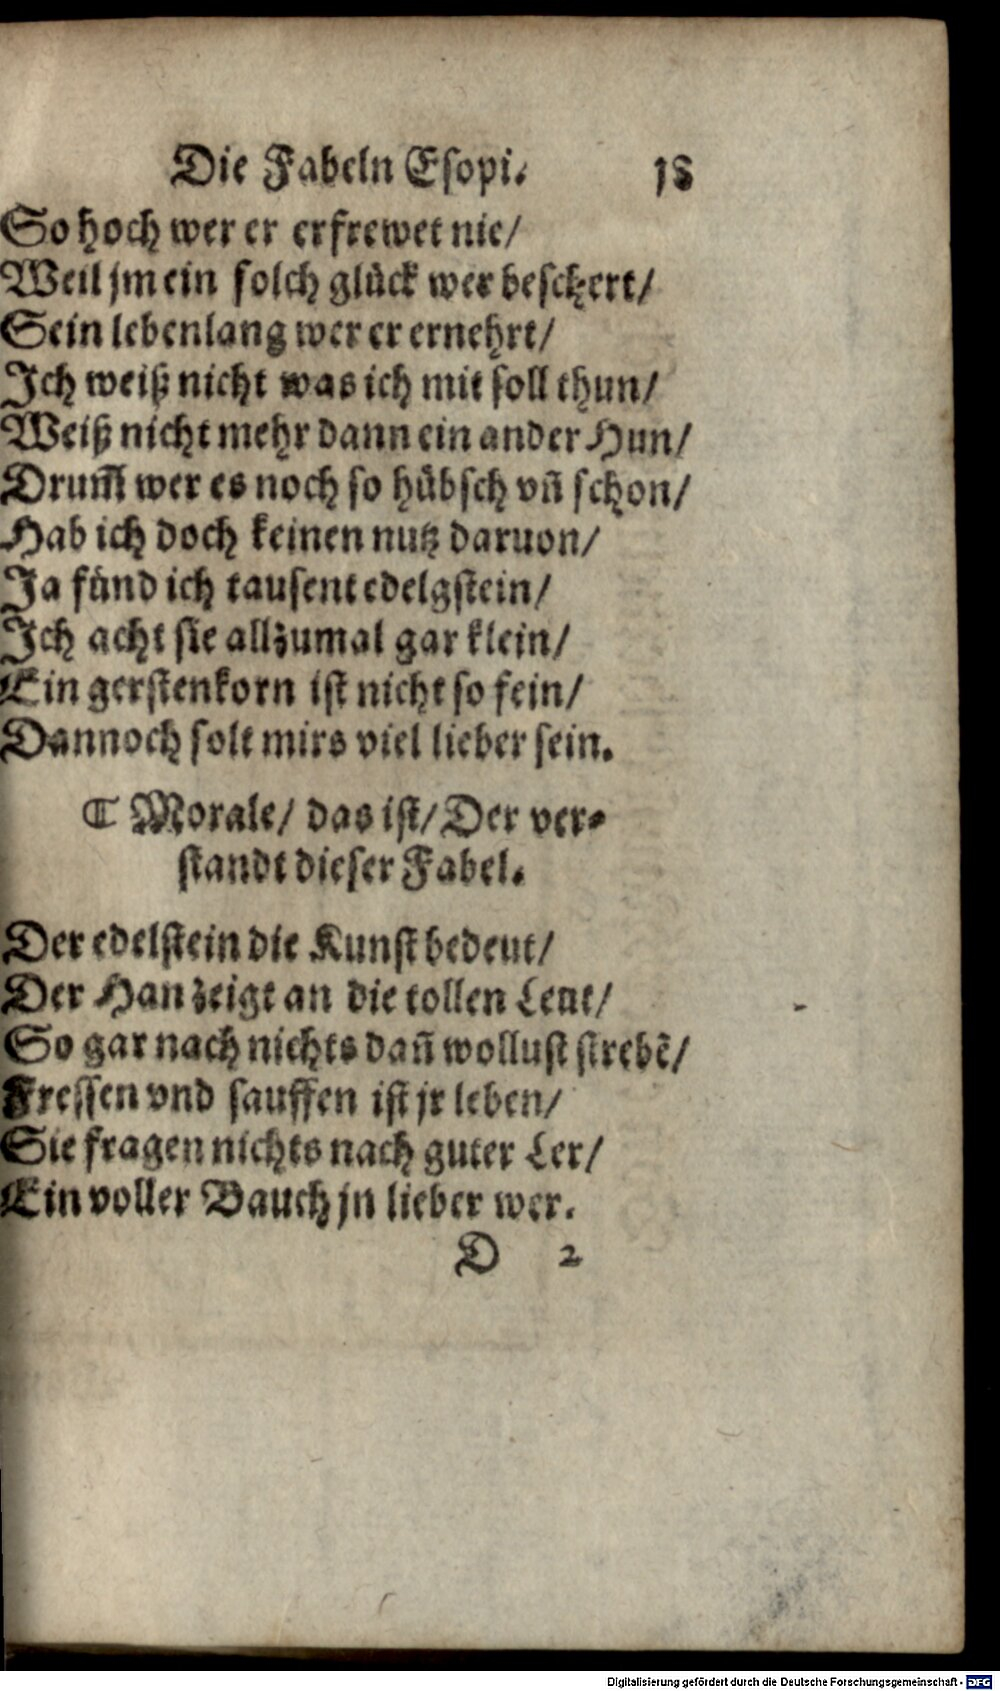 Die Fabeln Esopi. 18
So hoch wer er erfrewet nie/
Weil jm ein solch glück wer beschert/
Sein lebenlang wer er ernehrt/
Ich weiß nicht was ich mit soll thun/
Weiß nicht mehr dann ein ander Hun/
Drum̃ wer es noch so hübsch vñ schon/
Hab ich doch keinen nutz daruon/
Ja fünd ich tausent edelgstein/
Ich acht sie allzumal gar klein/
Ein gerstenkorn ist nicht so fein/
Dannoch solt mirs viel lieber sein.
☾ Morale/ das ist/ Der ver⸗
standt dieser Fabel.
Der edelstein die Kunst bedeut/
Der Han zeigt an die tollen Leut/
So gar nach nichts dañ wollust strebẽ/
Fressen vnd sauffen ist jr leben/
Sie fragen nichts nach guter Ler/
Ein voller Bauch jn lieber wer.
D 2
Digitalisierung gefördert durch die Deutsche Forschungsgemeinschaft - DFG